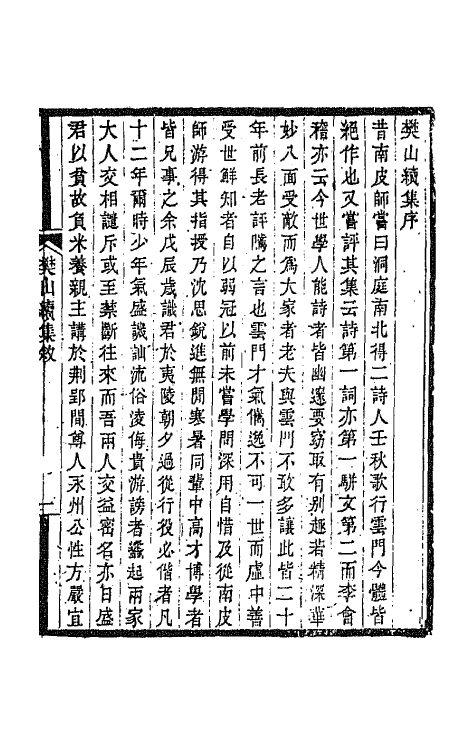 樊山續集序
昔南皮師嘗曰洞庭南北得二詩人壬秋歌行雲門今體皆
絕作也又嘗評其集云詩第一詞亦第一駢文第二而李會
稽亦云今世學人能詩者皆幽邃要窈取有别趣若精深華
妙八面受敵而爲大家者老夫與雲門不敢多讓此皆二十
年前長老評隲之言也雲門才氣儁逸不可一世而虛中善
受世鮮知者自以弱冠以前未嘗學問深用自惜及從南皮
師游得其指授乃沈思銳進無閒寒暑同輩中高才博學者
皆兄事之余戊辰歲識君於夷陵朝夕過從行役必偕者凡
十二年爾時少年氣盛譏訕流俗凌侮貴游謗者蠭起兩家
大人交相譴斥或至禁斷往來而吾兩人交益密名亦日盛
君以貧故負米養親主講於荆郢間尊人永州公性方嚴宜
樊山續集敘
一